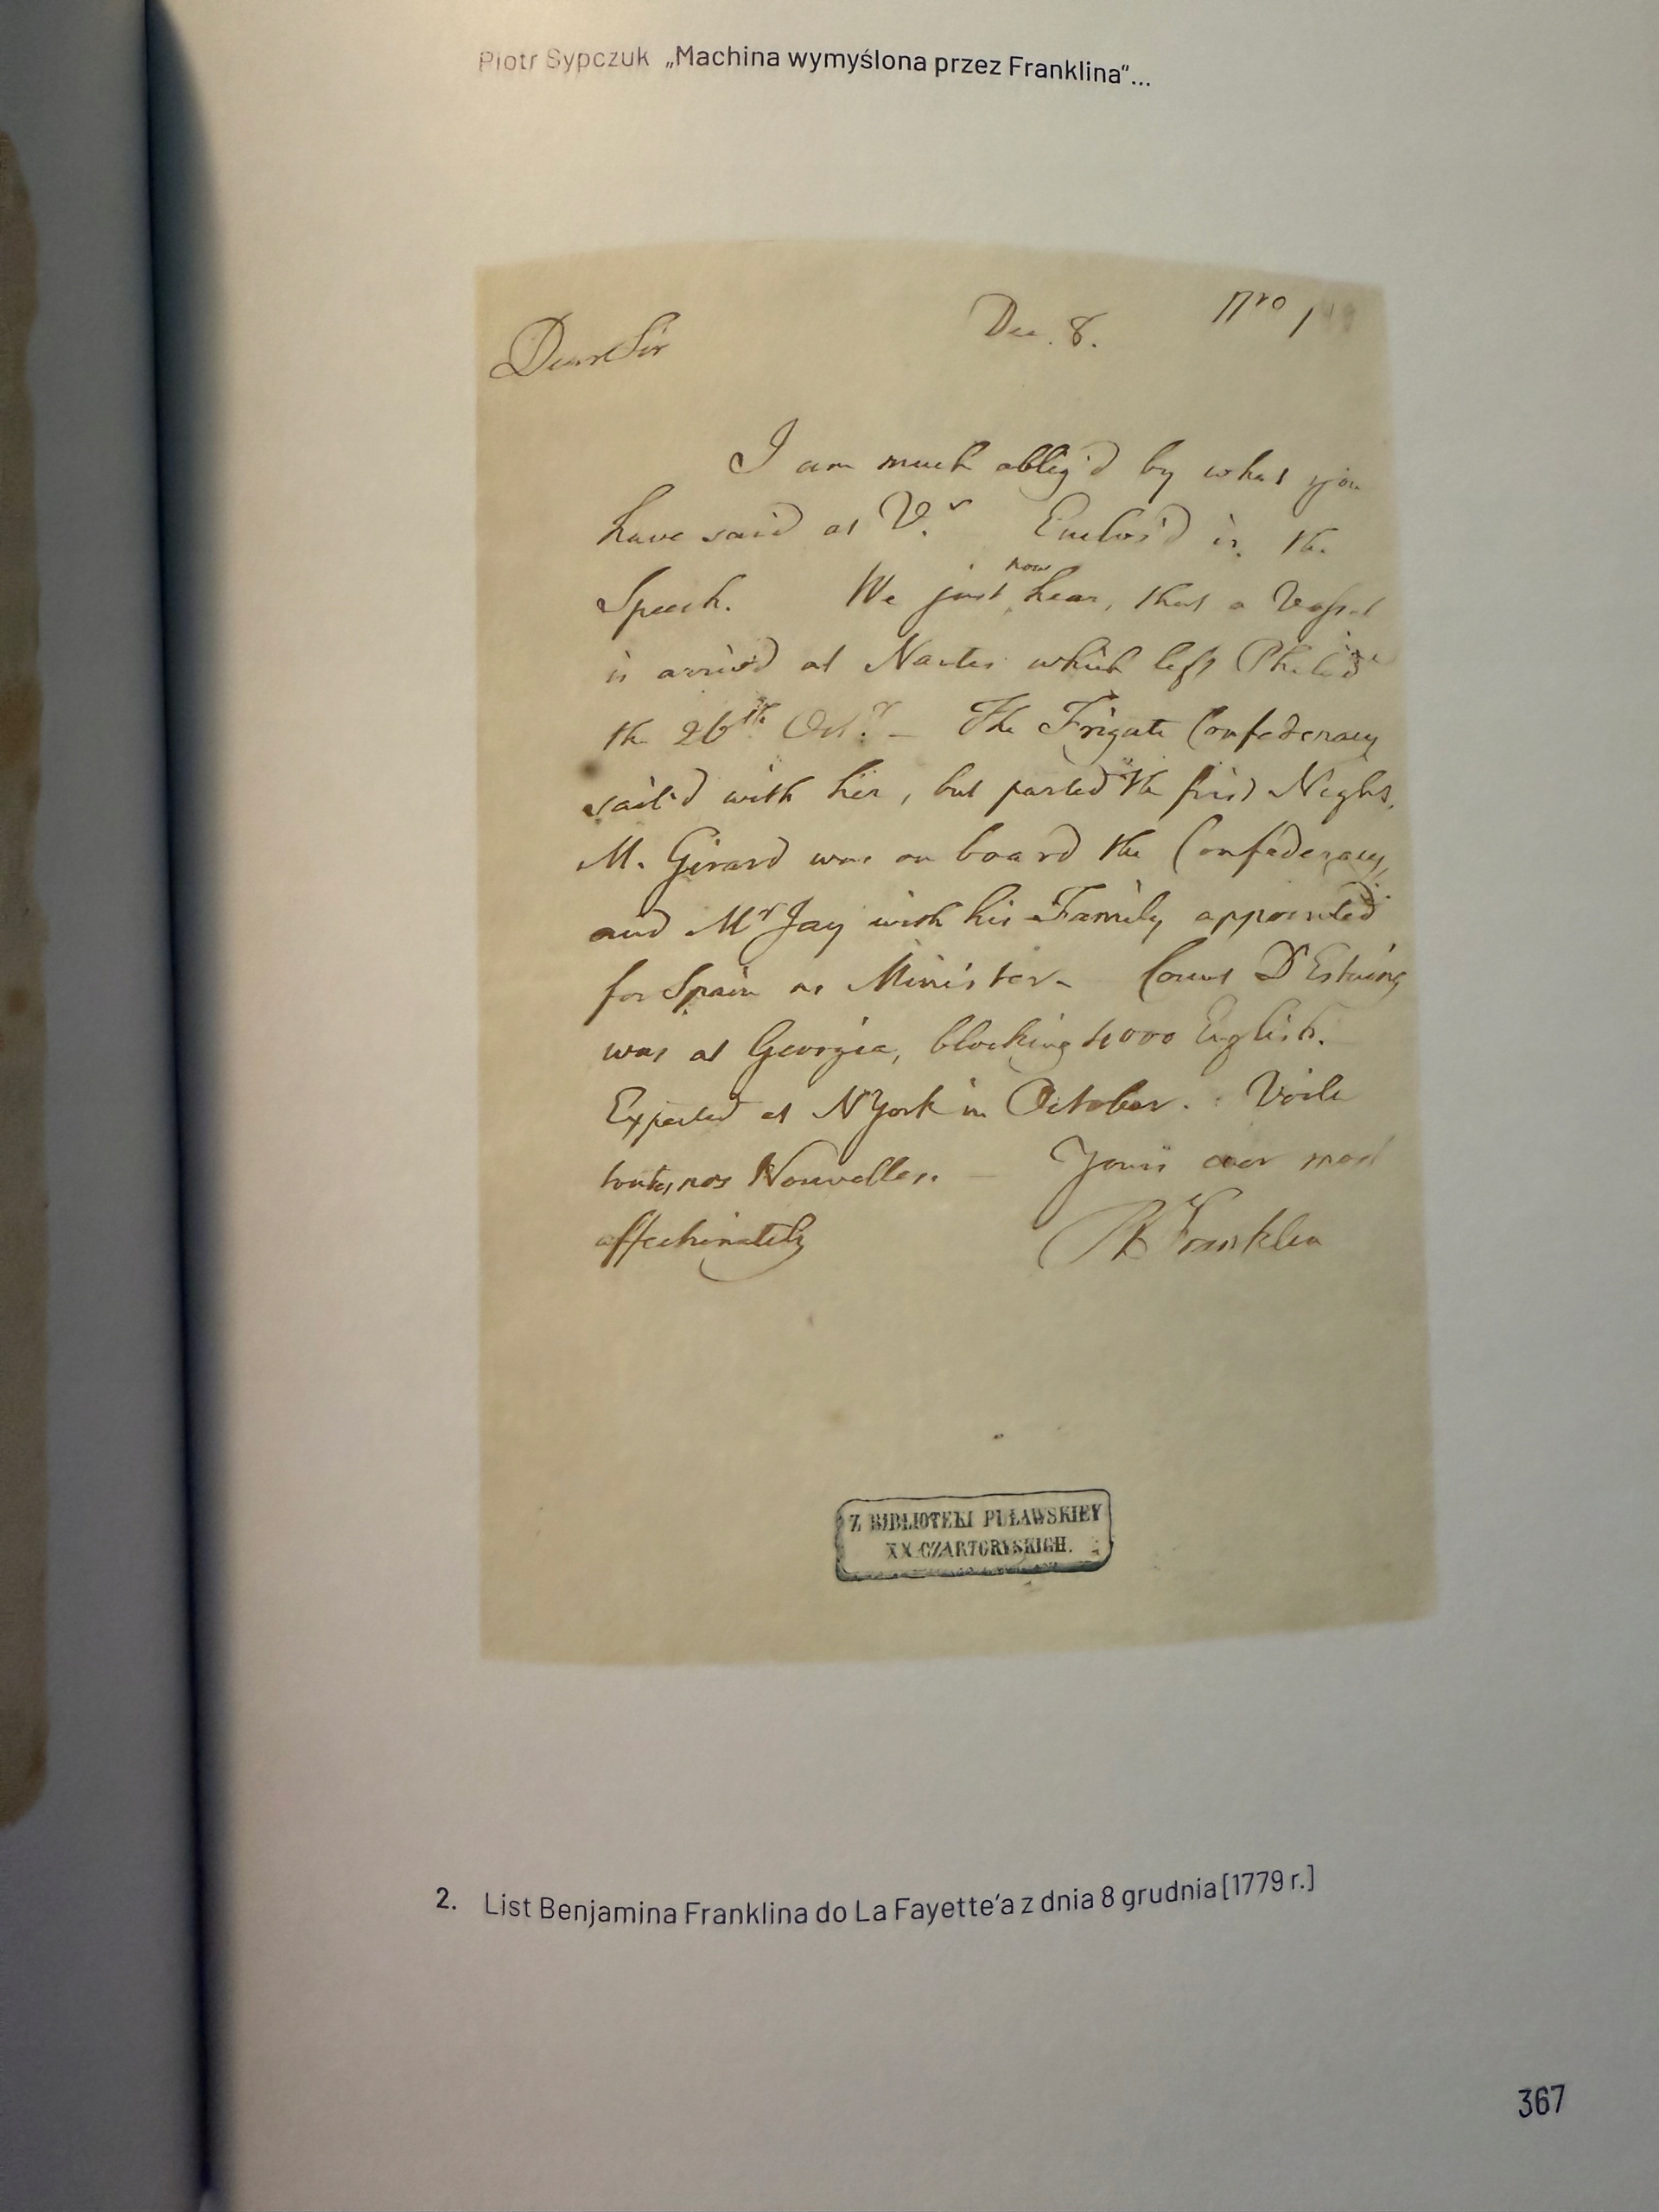 Piotr Sypczuk „Machina wymyślona przez Franklina”...
Dec. 8. Nro 1
Dear Sir
I am much oblig'd by what you
have said at V.s Enclos'd is the
Speech. We just now hear, that a Vessel
is arriv'd at Nantes which left Philad
the 26th Octr. – The Frigate Confederacy
sail'd with her, but parted the first Night,
M. Girard was on board the Confederacy,
and Mr Jay with his Family appointed
for Spain as Minister – Count D'Estaing
was at Georgia, blocking 4000 English.
Expected at N York in October. Voila
toutes nos Nouvelles. – Yours ever most
affectionately B Franklin
Z BIBLIOTEKI PUŁAWSKIEY
XX.CZARTORYSKICH.
2. List Benjamina Franklina do La Fayette'a z dnia 8 grudnia [1779 r.]
367